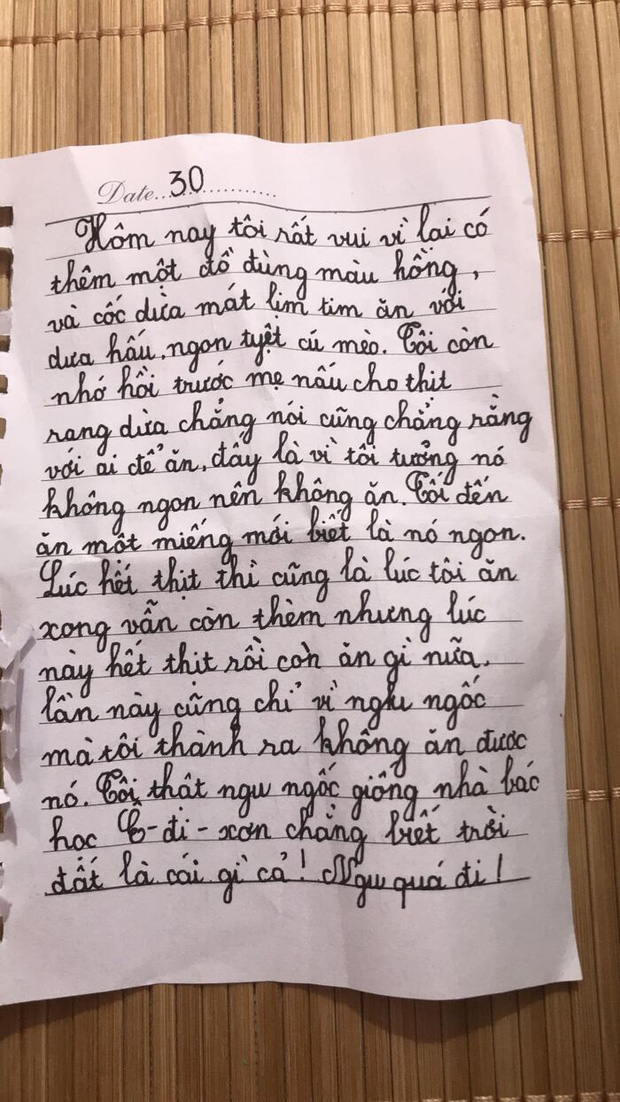 Date... 30
Hôm nay tôi rất vui vì lại có
thêm một đồ dùng màu hồng,
và cốc dừa mát lịm tim ăn với
dưa hấu, ngon tuyệt cú mèo. Tôi còn
nhớ hồi trước mẹ nấu cho thịt
rang dừa chẳng nói cũng chẳng rằng
với ai để ăn, đấy là vì tôi tưởng nó
không ngon nên không ăn. Tối đến
ăn một miếng mới biết là nó ngon.
Lúc hết thịt thì cũng là lúc tôi ăn
xong vẫn còn thèm nhưng lúc
này hết thịt rồi còn ăn gì nữa.
lần này cũng chỉ vì ngu ngốc
mà tôi thành ra không ăn được
nó. Tôi thật ngu ngốc giống nhà bác
học Ê-đi-xơn chẳng biết trời
đất là cái gì cả! Ngu quá đi!